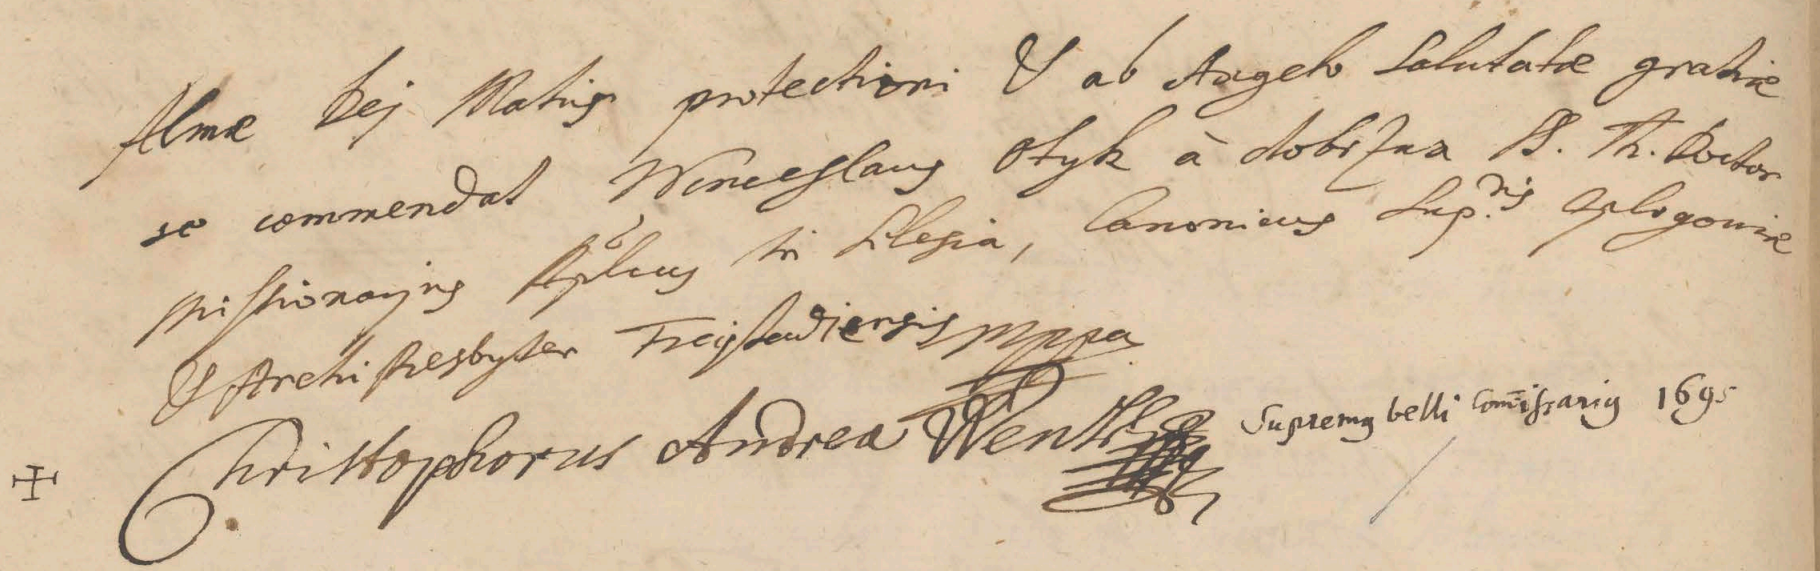 Almæ Dej Matris protectioni & ab Angelo Salutatæ gratiæ
se commendat Wenceslaus Otyk à dobrzna SS. Th. Doctor
Missionarius Aplicus in Silesia, Canonicus Glogoviæ
& Archi Presbyter Freystadiensis mppa
Christophorus Andrea Supremg belli Com̄issarig 1695